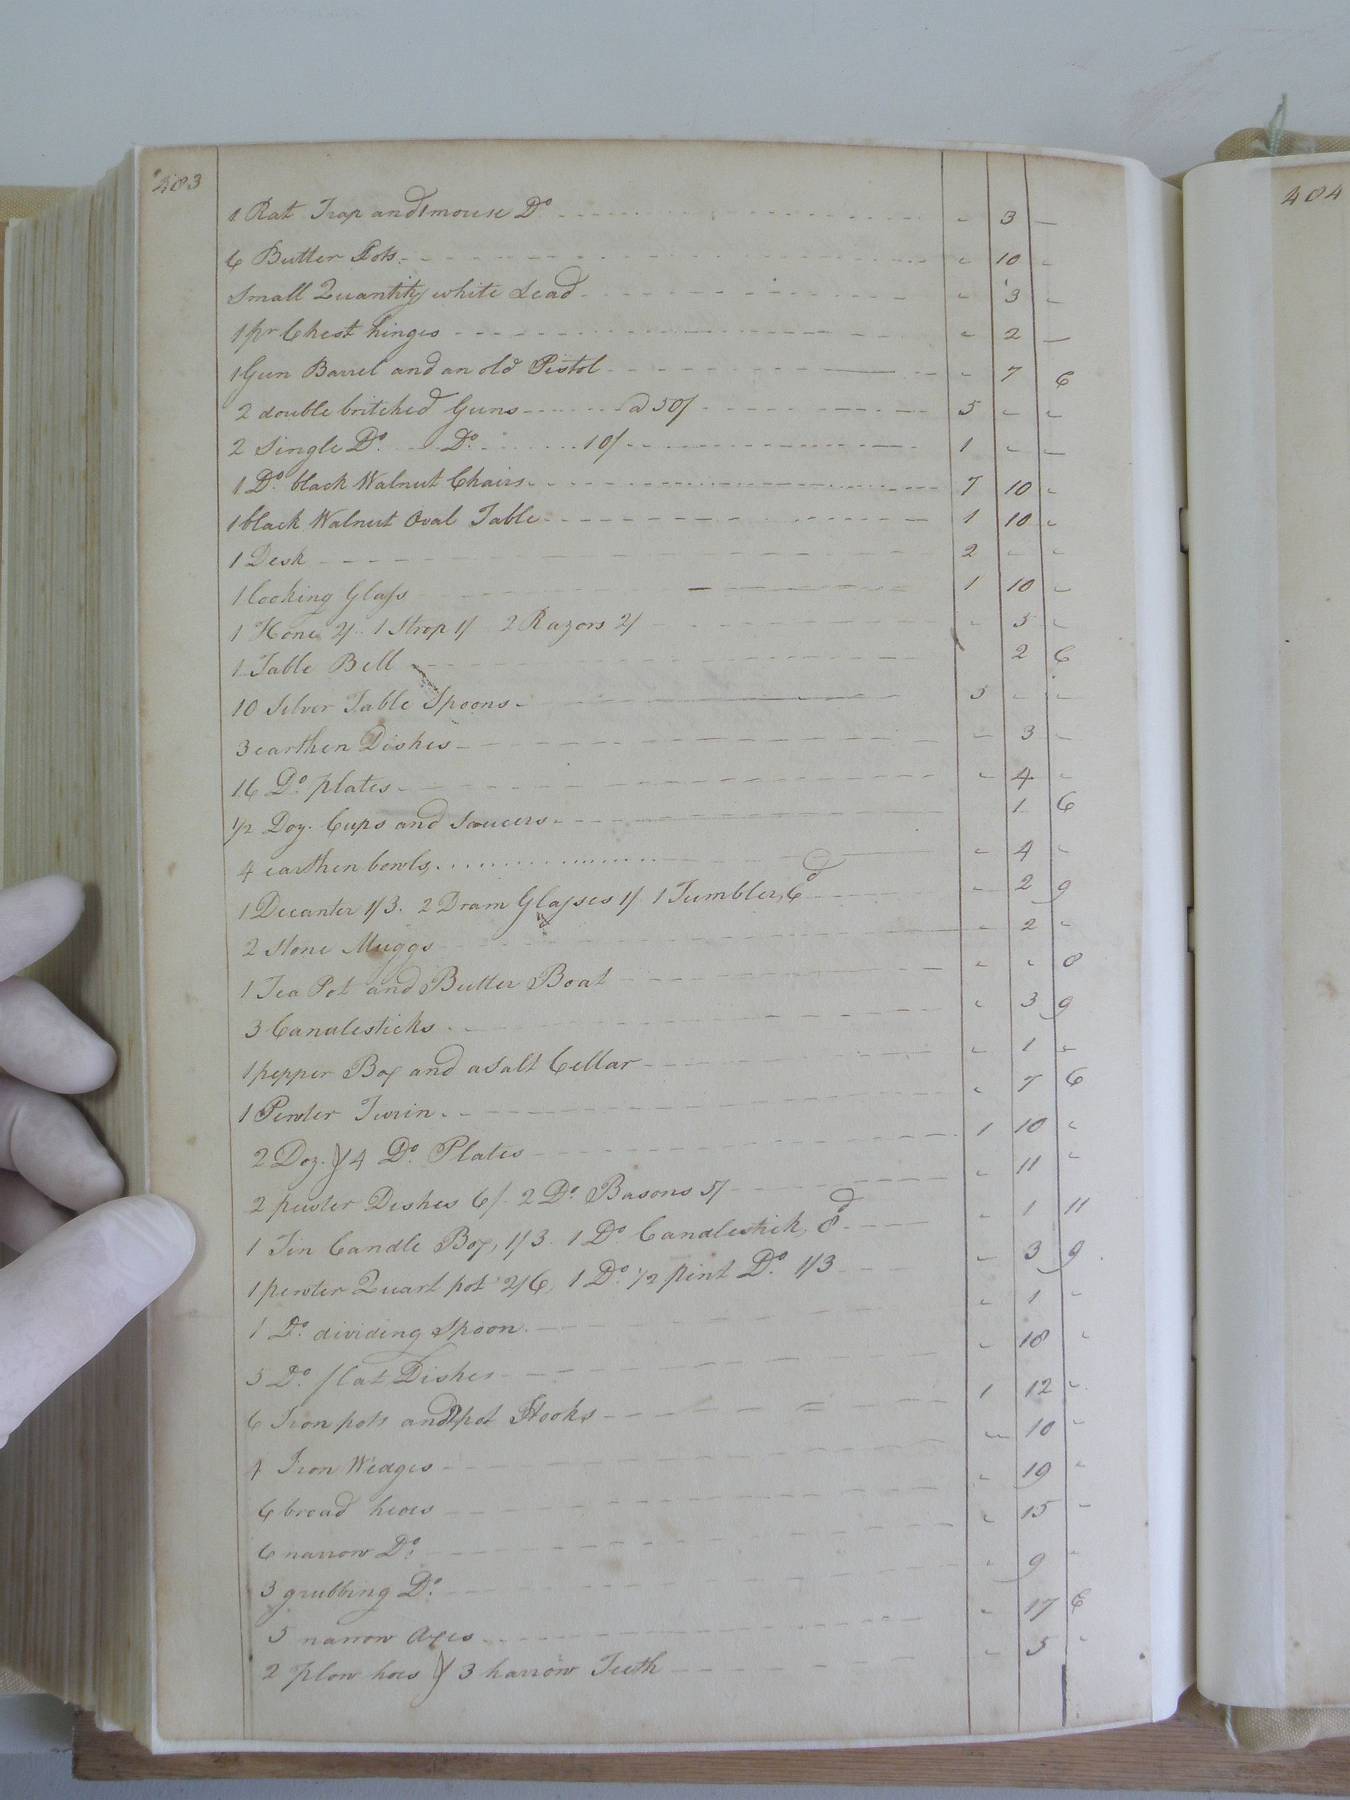 403
1 Rat Trap and 1 mouse Do - 3 -
6 Butter Pots - 10 -
Small Quantity white Lead - 3 -
1 pr Chest hinges - 2 -
1 Gun Barrel and an old Pistol - 7 6
2 double britched Guns @ 50/ 5 - -
2 Single Do. Do. 10/ 1 - -
1 Do. black Walnut Chairs 7 10 -
1 black Walnut Oval Table 1 10 -
1 Desk 2 - -
1 looking Glass 1 10 -
1 Hone 2/ 1 Strop 1/ 2 Razors 2/ - 5 -
1 Table Bell 2 6
10 Silver Table Spoons 5 - -
3 earthen Dishes - 3 -
16 Do. plates - 4 -
1/2 Doz. Cups and Saucers 1 6
4 earthen bowls - 4 -
1 Decanter 1/3. 2 Dram Glasses 1/ 1 Tumbler, 6d - 2 9
2 stone Muggs - 2 -
1 Tea Pot and Butter Boat - - 8
3 Candlesticks - 3 9
1 pepper Box and a Salt Cellar - 1 -
1 Pewter Turin - 7 6
2 Doz. & 4 Do. Plates 1 10 -
2 pewter Dishes 6/ 2 Do. Basons 5/ - 11 -
1 Tin Candle Box, 1/3 1 Do. Candlestick, 8d - 1 11
1 pewter Quart pot 2/6, 1 Do. 1/2 pint Do. 1/3 - 3 9
1 Do. dividing Spoon - 1 -
5 Do. flat Dishes - 18 -
6 Iron pots and pot Hooks 1 12 -
4 Iron Wedges - 10 -
6 broad hoes - 19 -
6 narrow Do. - 15 -
3 grubbing Do. - 9 -
5 narrow Axes - 17 6
2 plow hoes & 3 harrow Teeth - 5 -
404